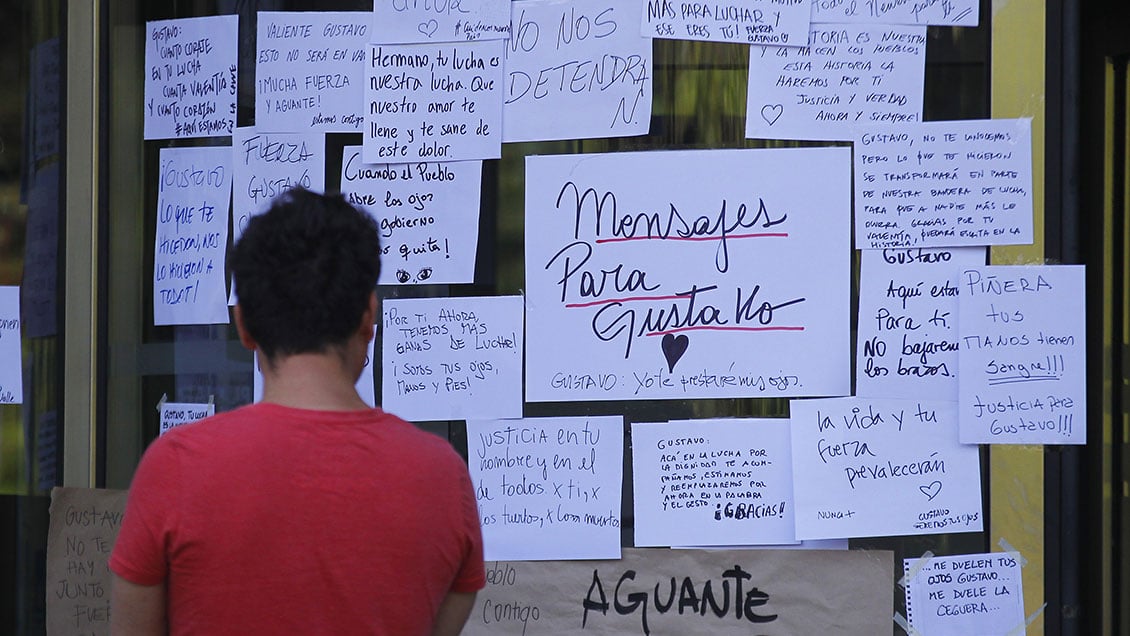 GUSTAVO:
CUANTO CORAJE
EN TU LUCHA
CUANTA VALENTÍA
Y CUANTO CORAZÓN
#AQUI ESTAMOS
VALIENTE GUSTAVO
ESTO NO SERÁ EN VA
¡MUCHA FUERZA
Y AGUANTE!
Hermano, tu lucha es
nuestra lucha. Que
nuestro amor te
llene y te sane de
este dolor.
NO NOS
DETENDRA
N
MAS PARA LUCHAR Y
ESE ERES TÚ! FUERZA
GUSTAVO
TORIA ES NUESTRA
LA HACEN LOS PUEBLOS
ESTA HISTORIA LA
HAREMOS POR TI
JUSTICIA Y VERDAD
AHORA Y SIEMPRE
GUSTAVO, NO TE CONOCEMOS
PERO LO QUE TE HICIERON SE
TRANSFORMARÁ EN PARTE
DE NUESTRA BANDERA DE LUCHA,
PARA QUE A NADIE MÁS LE
OCURRA. GRACIAS POR TU
VALENTÍA, QUEDARÁ ESCRITA EN LA
HISTORIA
¡GUSTAVO
LO QUE TE
HICIERON, NOS
LO HICIERON A
TODOS!
FUERZA
GUSTAVO
Cuando el Pueblo
Abre los ojos
gobierno
quita!
Mensajes
Para
Gustavo
GUSTAVO: Yo te prestaré mis ojos.
Gustavo
Aquí estam
Para ti.
NO bajarem
los brazos.
PIÑERA
TUS
MANOS tienen
Sangre!!!
Justicia para
Gustavo!!!
¡POR TI AHORA
TENEMOS MÁS
GANAS DE LUCHAR!
¡SOMOS TUS OJOS,
MANOS Y PIES!
JUSTICIA EN TU
NOMBRE Y EN EL
de todos. x ti, x
los tuertos, x los muertos
GUSTAVO:
ACÁ EN LA LUCHA POR
LA DIGNIDAD TE ACOM-
PAÑAMOS, ESTIMAMOS
Y REEMPLAZAREMOS POR
AHORA EN LA PALABRA
Y EL GESTO. ¡GRACIAS!
La vida Y tu
fuerza
prevalecerán
NUNCA+
GUSTAVO
SEREMOS TUS OJOS
GUSTAVO
NO TE
HAY
JUNTO
FUER
Pueblo
Contigo
AGUANTE
...ME DUELEN TUS
OJOS GUSTAVO...
ME DUELE LA
CEGUERA...